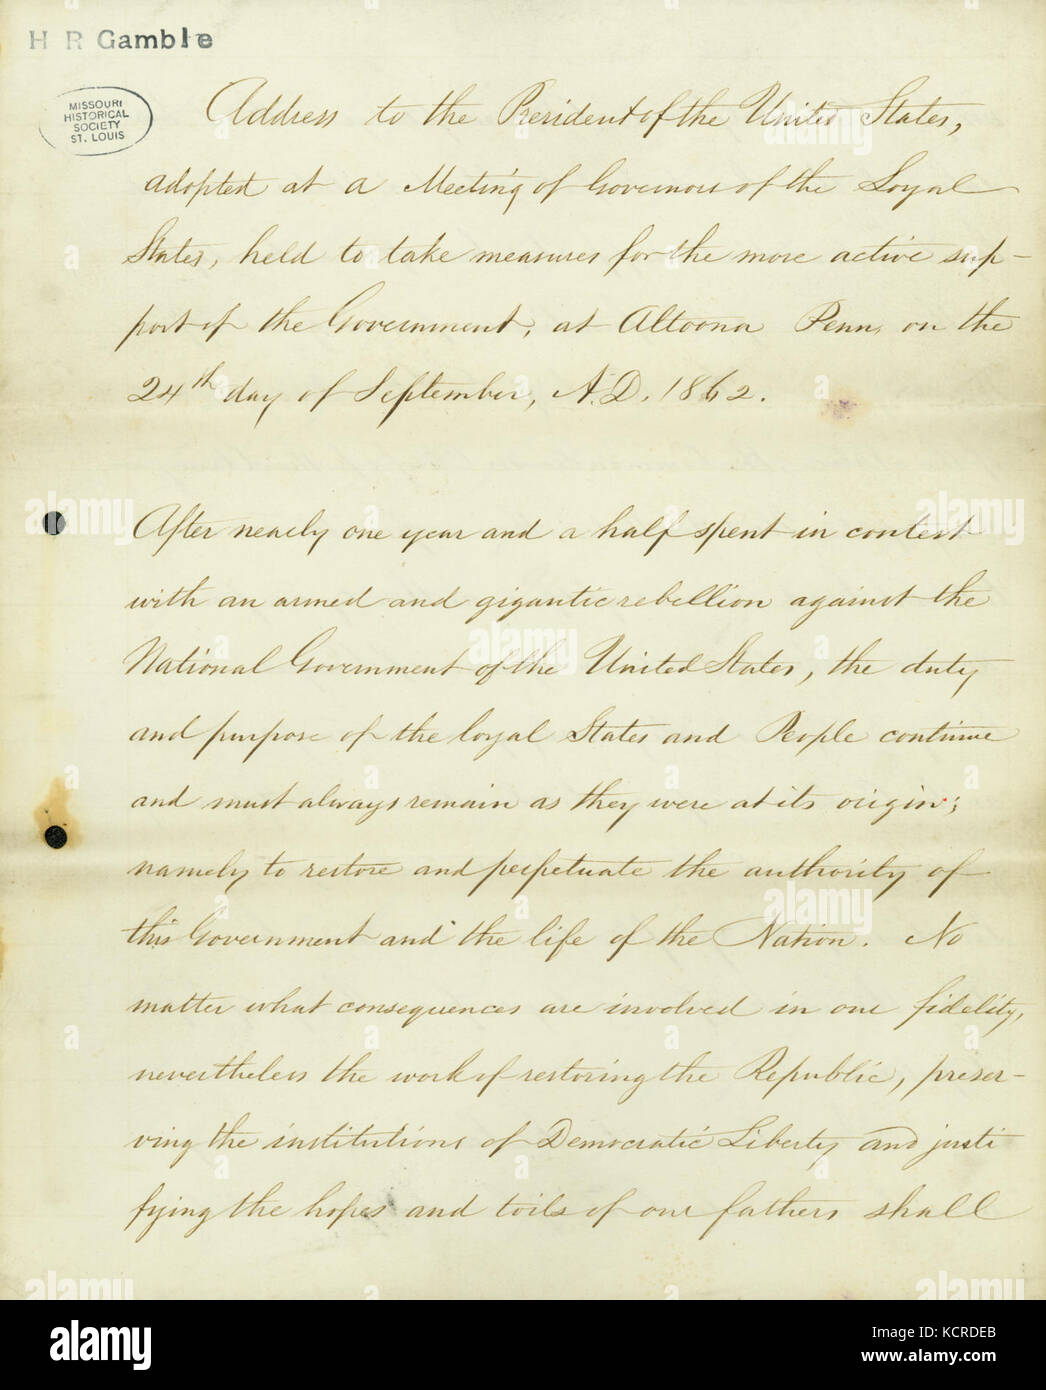 H R Gamble
MISSOURI
HISTORICAL
SOCIETY
ST. LOUIS
Address to the President of the United States,
adopted at a Meeting of Governors of the Loyal
States, held to take measures for the more active sup-
port of the Government, at Altoona Penn, on the
24th day of September, A.D. 1862.
After nearly one year and a half spent in contest
with an armed and gigantic rebellion against the
National Government of the United States, the duty
and purpose of the loyal States and People continue
and must always remain as they were at its origin;
namely to restore and perpetuate the authority of
this Government and the life of the Nation. No
matter what consequences are involved in our fidelity,
nevertheless the work of restoring the Republic, preser-
ving the institutions of Democratic Liberty and justi
fying the hopes and toils of our fathers shall
alamy
Image ID: KCRDEB
www.alamy.com